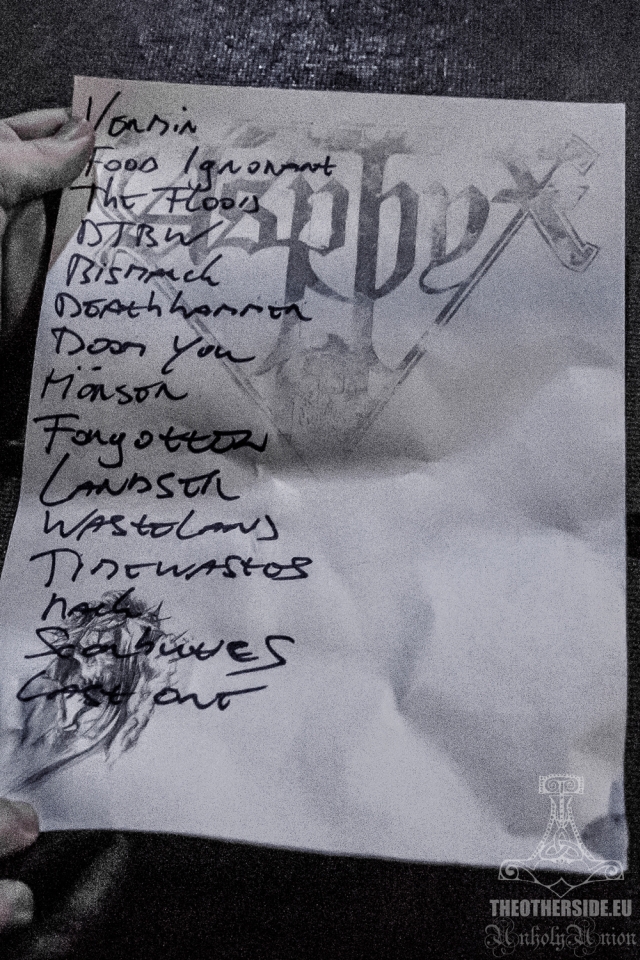 Vermin
Food Ignorant
The Floods
DTBW
Bismarck
Deathhammer
Doom You
Mörser
Forgotten
Landser
Wasteland
Timewastos
Mach
Scorbutics
Last One
Asphyx
THEOTHERSIDE.EU
UnholyUnion